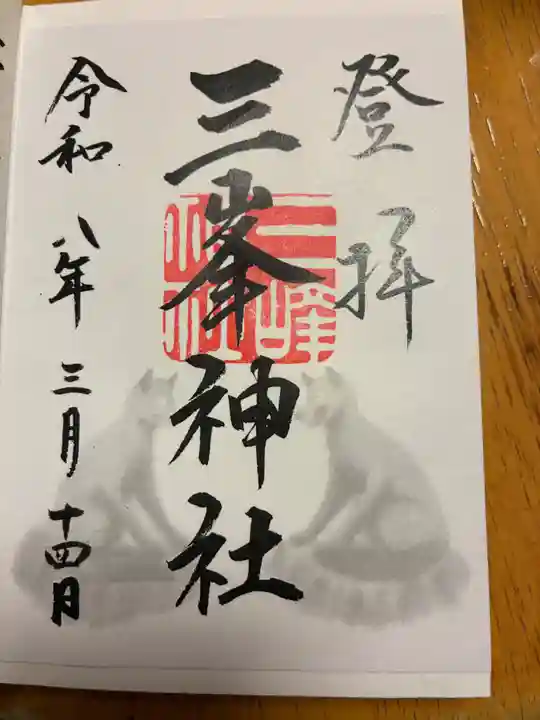 登拝
三峯神社
三峰
神社
令和八年三月十四日